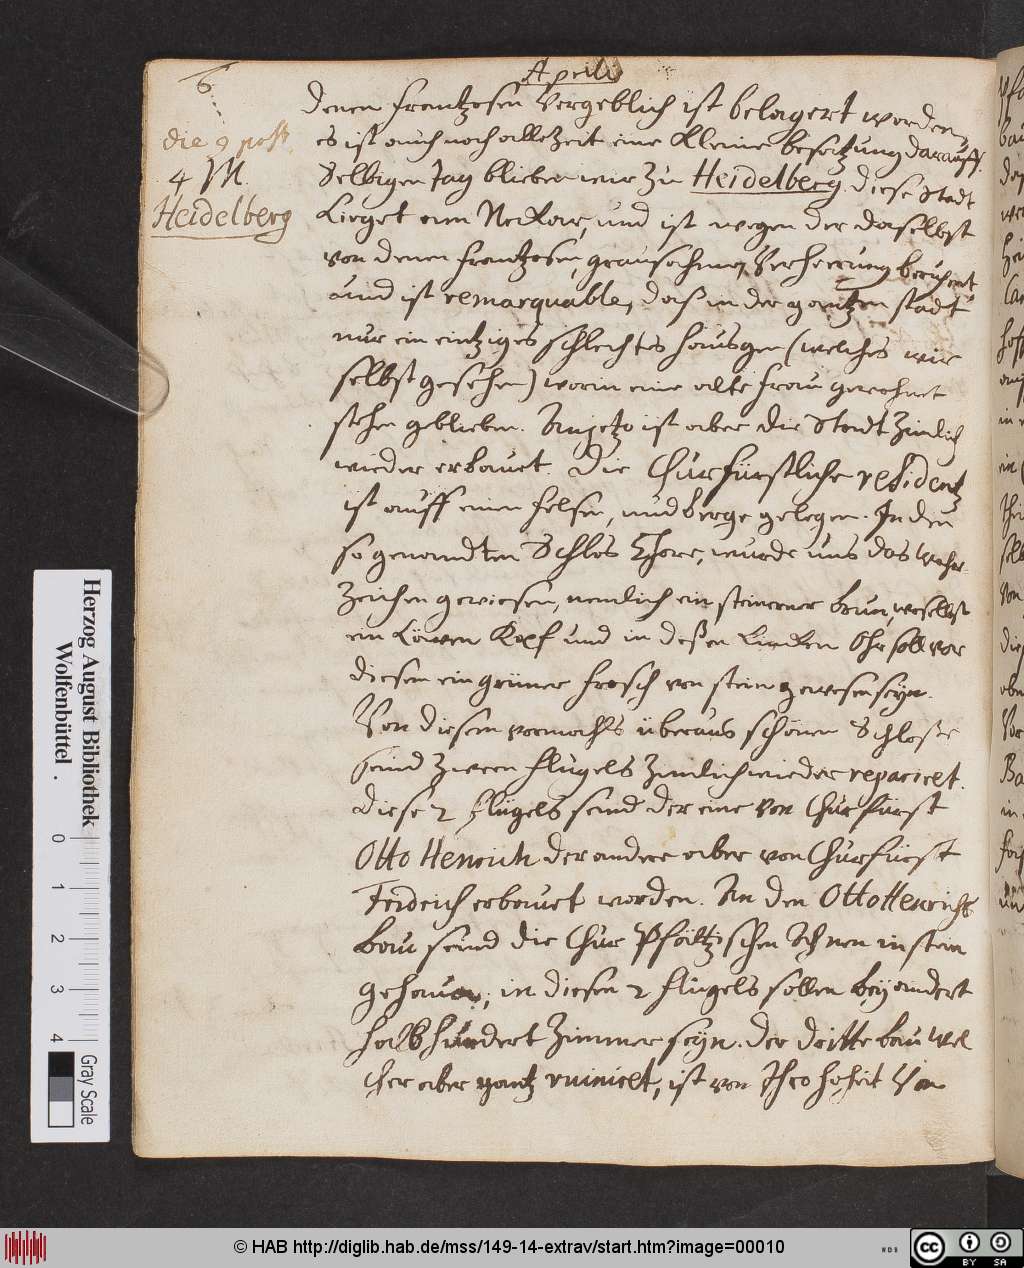 6
Aprilis
die 9 post
4 M.
Heidelberg
denen Frantzosen Vergeblich ist belagert worden,
es ist auch noch alle Zeit eine Kleine besatzung darauff.
Selbigen Tag blieben wir zu Heidelberg. diese Stadt
Lieget am Neckar, und ist wegen der daselbst
von denen Frantzosen, grausahmen Verherrung berühmt
und ist remarquable, daß in der gantzen stadt
nur ein eintziges schlechtes häusgen (welches wir
selbst gesehen) worin eine alte frau gewohnet
stehen geblieben. Anjetzo ist aber die Stadt Zimlich
wieder erbauet. Die Churfürstliche residentz
ist auff einen felsen, und berge gelegen. In den
so genandten Schlos Thore, wurde uns das Wahr-
Zeichen gewiesen, nemlich ein steinerner brun, woselbst
ein Löwen Kopf und in deßen Lincken Ohr soll vor
diesem ein grüner frosch von stein gewesen seyn.
Von diesem vormahls überaus schönen Schloße
seind Zween flügels Zimlich wieder repariert.
diese 2 flügels seind der eine von Churfürst
Otto Henrich der andere aber von Churfürst
Fridrich erbauet worden. An den Otto Henrichs
bau seind die Chur Pfältzischen Ahnen in stein
gehauen, in diesen 2 flügels sollen bey andert
halb hundert Zimmer seyn. der dritte bau wel
cher aber gantz ruiniert, ist von Ihro hoheit Von
Herzog August Bibliothek
Wolfenbüttel .
0 1 2 3 4
Gray Scale
© HAB http://diglib.hab.de/mss/149-14-extrav/start.htm?image=00010
cc BY SA